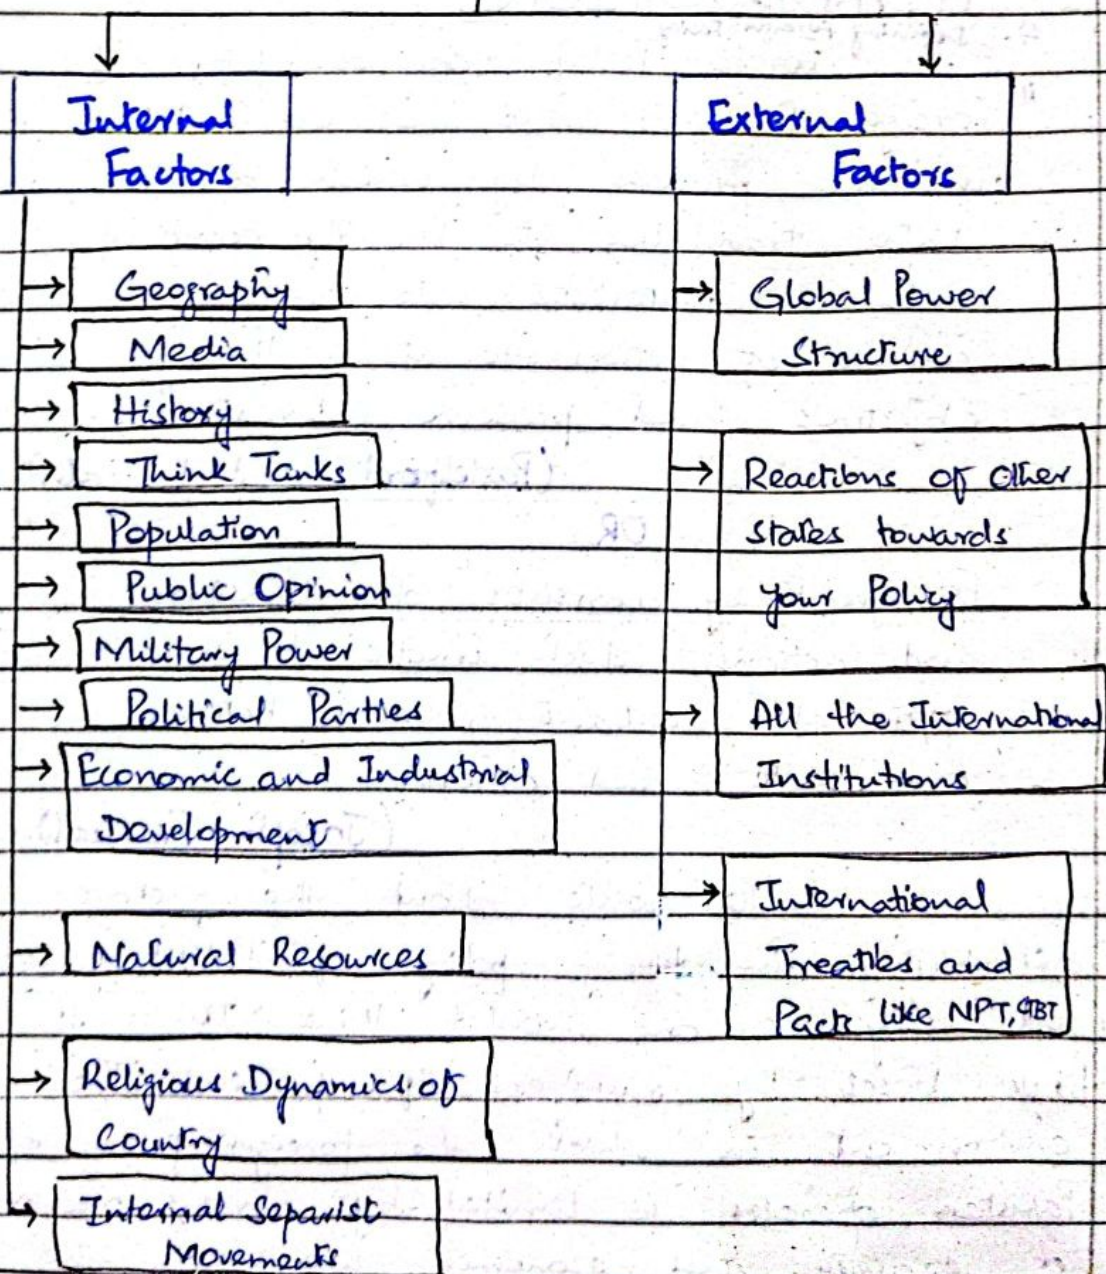 Internal
Factors
Geography
Media
History
Think Tanks
Population
Public Opinion
Military Power
Political Parties
Economic and Industrial
Development
Natural Resources
Religious Dynamics of
Country
Internal Separist
Movements
External
Factors
Global Power
Structure
Reactions of other
states towards
your Policy
All the International
Institutions
International
Treaties and
Pacts like NPT, CTBT